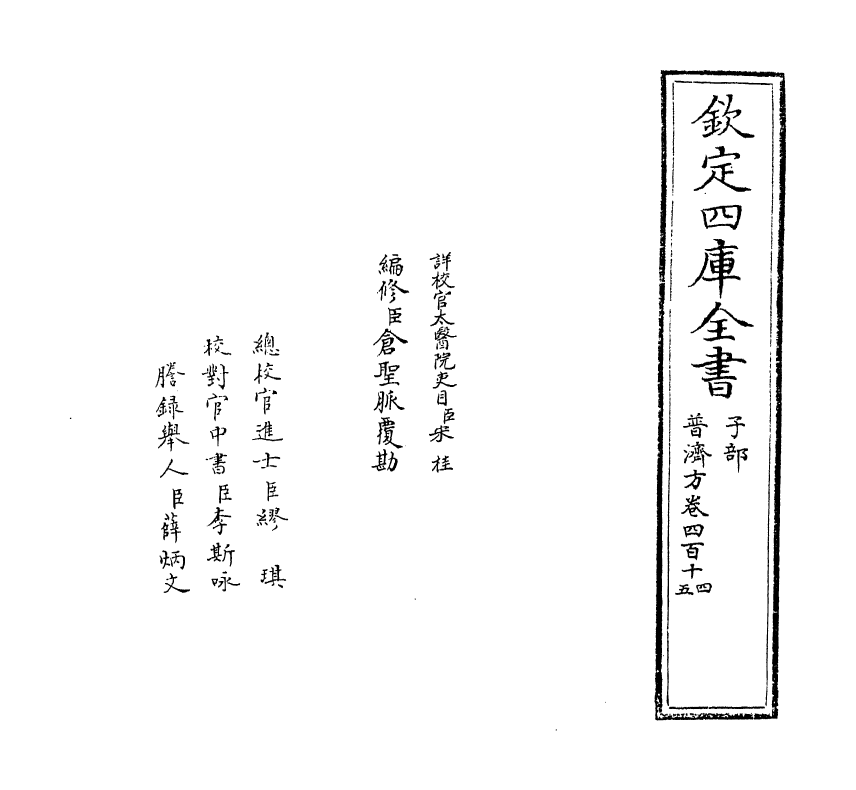 欽定四庫全書
子部
普濟方卷四百十四五
詳校官太醫院吏目臣宋桂
編修臣倉聖脈覆勘
總校官進士臣繆琪
校對官中書臣李斯咏
謄録舉人臣薛炳文